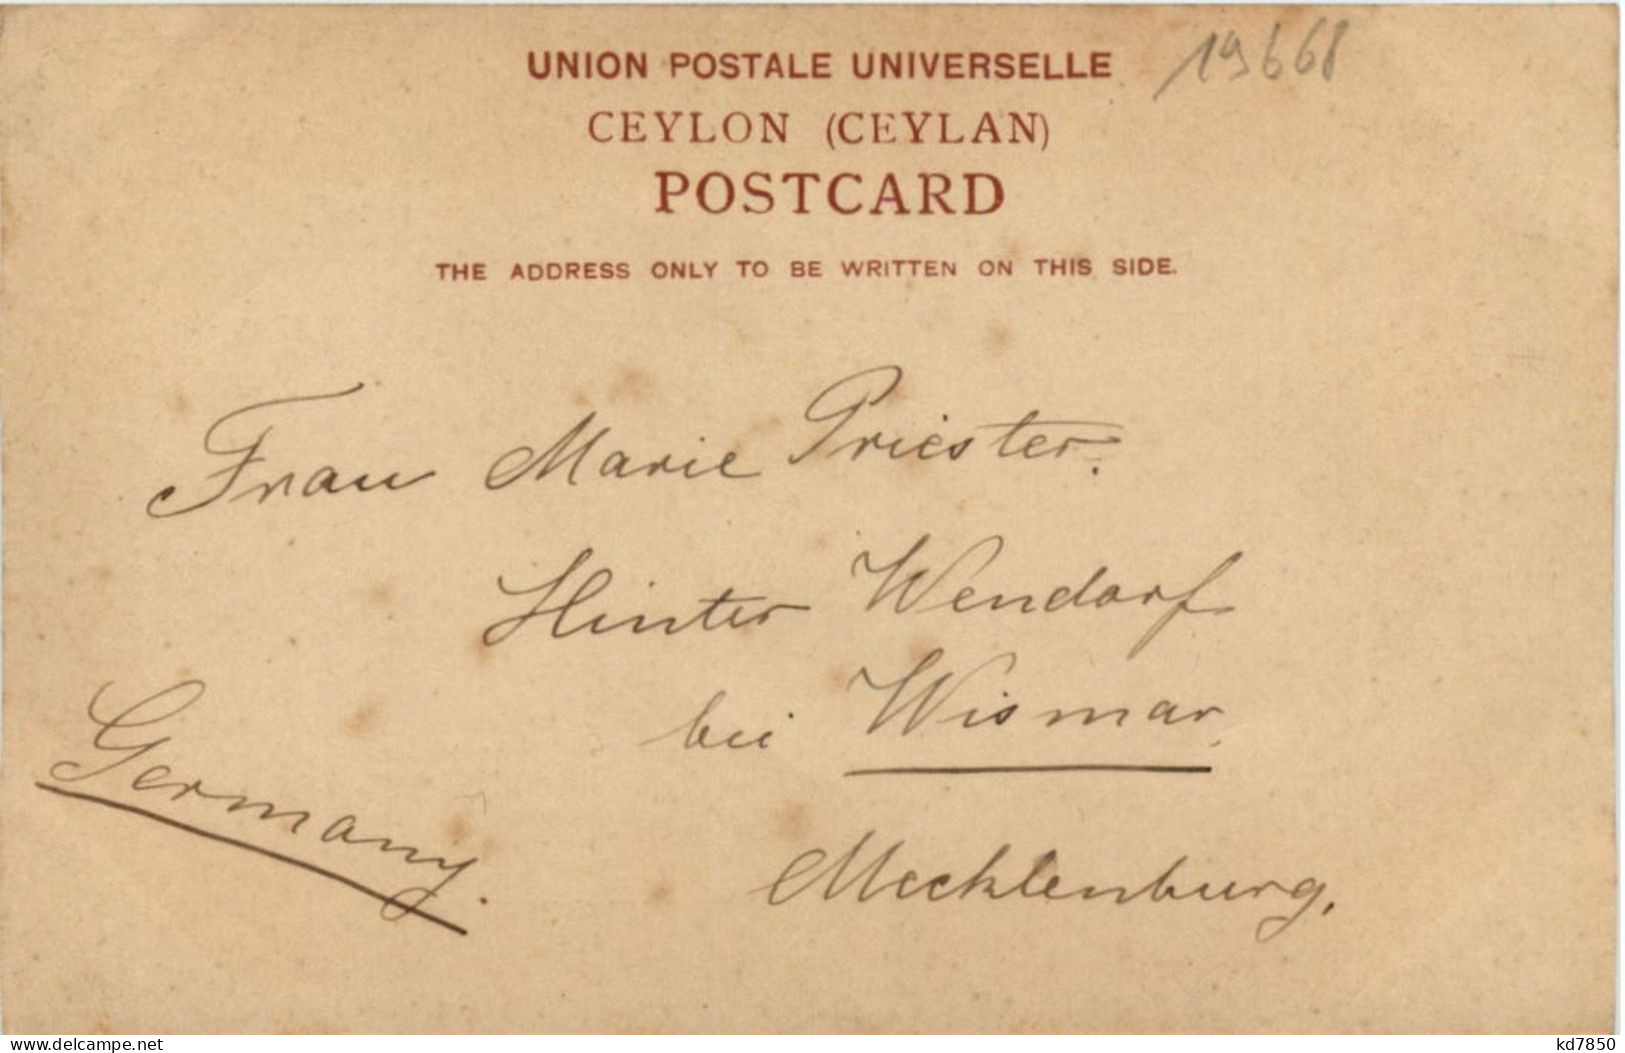 UNION POSTALE UNIVERSELLE
19668
CEYLON (CEYLAN)
POSTCARD
THE ADDRESS ONLY TO BE WRITTEN ON THIS SIDE.
Frau Marie Priester.
Hinter Wendorf
bei Wismar
Germany.
Mecklenburg.
www.delcampe.net
kd7850